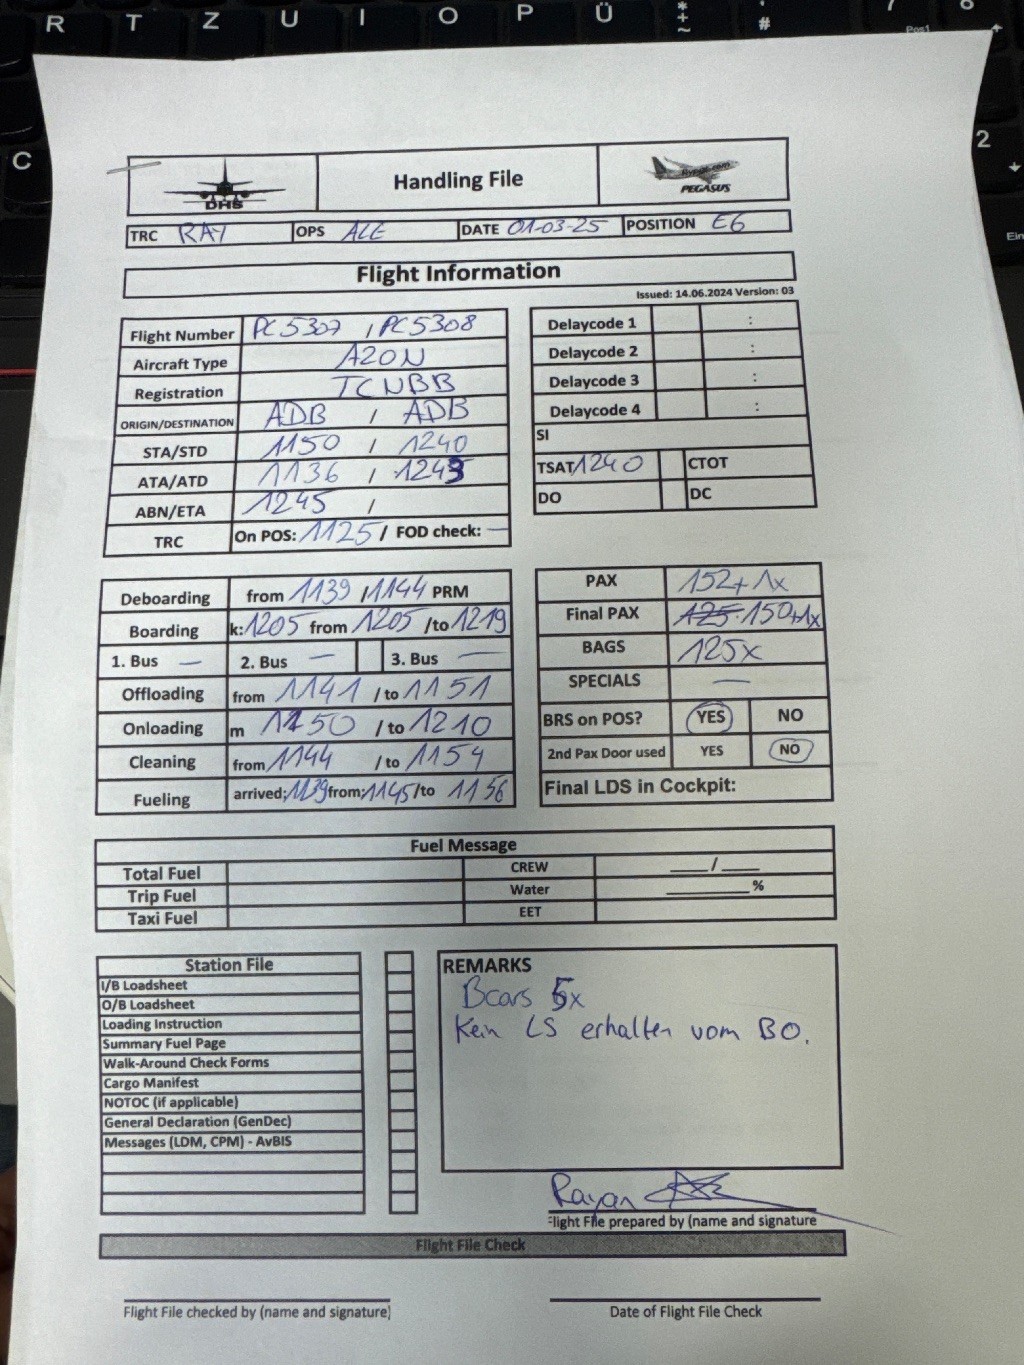 R T Z U I O P Ü * + ~ ' #
C
2
Pos1
Ein
DHS
Handling File
flypgs.com
PEGASUS
TRC RAY OPS ALE DATE 01-03-25 POSITION E6
Flight Information
Issued: 14.06.2024 Version: 03
Flight Number PC5307 / PC5308
Aircraft Type A20N
Registration TCNBB
ORIGIN/DESTINATION ADB / ADB
STA/STD 1150 / 1240
ATA/ATD 1136 / 1243
ABN/ETA 1245 /
TRC On POS: 1125 / FOD check: —
Delaycode 1 :
Delaycode 2 :
Delaycode 3 :
Delaycode 4 :
SI
TSAT 1240 CTOT
DO DC
Deboarding from 1139 / 1144 PRM
Boarding k: 1205 from 1205 /to 1219
1. Bus — 2. Bus — 3. Bus —
Offloading from 1141 / to 1151
Onloading m 1150 / to 1210
Cleaning from 1144 / to 1154
Fueling arrived; 1139 from; 1145 /to 1156
PAX 152+1x
Final PAX 125 150+1x
BAGS 125x
SPECIALS —
BRS on POS? YES NO
2nd Pax Door used YES NO
Final LDS in Cockpit:
Fuel Message
Total Fuel CREW ___/___
Trip Fuel Water ______%
Taxi Fuel EET
Station File
I/B Loadsheet
O/B Loadsheet
Loading Instruction
Summary Fuel Page
Walk-Around Check Forms
Cargo Manifest
NOTOC (if applicable)
General Declaration (GenDec)
Messages (LDM, CPM) - AvBIS
REMARKS
Bcars 5x
Kein LS erhalten vom BO.
Rayan
Flight File prepared by (name and signature
Flight File Check
Flight File checked by (name and signature)
Date of Flight File Check